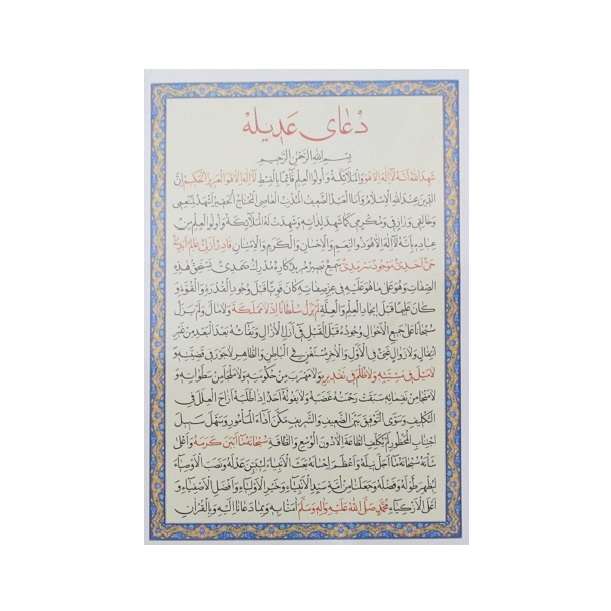 دعای عدیله
بِسْمِ اللهِ الرَّحْمٰنِ الرَّحیمِ
شَهِدَ اللهُ اَنَّهُ لا اِلهَ اِلّا هُوَ وَالْمَلائِكَةُ وَ اُولُوا الْعِلْمِ قائِماً بِالْقِسْطِ لا اِلهَ اِلّا هُوَ الْعَزیزُ الْحَكیمُ اِنَّ
الدّینَ عِنْدَ اللهِ الْاِسْلامُ وَ اَنَا الْعَبْدُ الضَّعیفُ الْمُذْنِبُ الْعاصِی الْمُحْتاجُ الْحَقیرُ اَشْهَدُ لِمُنْعِمی
وَ خالِقی وَ رازِقی وَ مُكْرِمی كَما شَهِدَ لِذاتِهِ وَ شَهِدَتْ لَهُ الْمَلائِكَةُ وَ اُولُوا الْعِلْمِ مِنْ
عِبادِهِ بِاَنَّهُ لا اِلهَ اِلّا هُوَ ذُو النِّعَمِ وَ الْاِحْسانِ وَ الْكَرَمِ وَ الْاِمْتِنانِ قادِرٌ اَزَلِیٌّ عالِمٌ اَبَدِیٌّ
حَیٌّ اَحَدِیٌّ مَوْجُودٌ سَرْمَدِیٌّ سَمیعٌ بَصیرٌ مُریدٌ كارِهٌ مُدْرِكٌ صَمَدِیٌّ یَسْتَحِقُّ هٰذِهِ
الصِّفاتِ وَ هُوَ عَلی ما هُوَ عَلَیْهِ فی عِزِّ صِفاتِهِ كانَ قَوِیّاً قَبْلَ وُجُودِ الْقُدْرَةِ وَ الْقُوَّةِ وَ
كانَ عَلیماً قَبْلَ ایجادِ الْعِلْمِ وَ الْعِلَّةِ لَمْ یَزَلْ سُلْطاناً اِذْ لا مَمْلَكَةَ وَ لا مالَ وَ لَمْ یَزَلْ
سُبْحاناً عَلی جَمیعِ الْاَحْوالِ وُجُودُهُ قَبْلَ الْقَبْلِ فی اَزَلِ الْآزالِ وَ بَقاؤُهُ بَعْدَ الْبَعْدِ مِنْ غَیْرِ
انْتِقالٍ وَ لا زَوالٍ غَنِیٌّ فِی الْاَوَّلِ وَ الْآخِرِ مُسْتَغْنٍ فِی الْباطِنِ وَ الظّاهِرِ لا جَوْرَ فی قَضِیَّتِهِ وَ
لا مَیْلَ فی مَشِیَّتِهِ وَ لا ظُلْمَ فی تَقْدیرِهِ وَ لا مَهْرَبَ مِنْ حُكُومَتِهِ وَ لا مَلْجَاَ مِنْ سَطَواتِهِ وَ
لا مَنْجا مِنْ نَقِماتِهِ سَبَقَتْ رَحْمَتُهُ غَضَبَهُ وَ لا یَفُوتُهُ اَحَدٌ اِذا طَلَبَهُ اَزاحَ الْعِلَلَ فِی
التَّكْلیفِ وَ سَوَّی التَّوْفیقَ بَیْنَ الضَّعیفِ وَ الشَّریفِ مَكَّنَ اَداءَ الْمَأْمُورِ وَ سَهَّلَ سَبیلَ
اجْتِنابِ الْمَحْظُورِ لَمْ یُكَلِّفِ الطّاعَةَ اِلّا دُونَ الْوُسْعِ وَ الطّاقَةِ سُبْحانَهُ ما اَبْیَنَ كَرَمَهُ وَ اَعْلی
شَأْنَهُ سُبْحانَهُ ما اَجَلَّ نَیْلَهُ وَ اَعْظَمَ اِحْسانَهُ بَعَثَ الْاَنْبِیاءَ لِیُبَیِّنَ عَدْلَهُ وَ نَصَبَ الْاَوْصِیاءَ
لِیُظْهِرَ طَوْلَهُ وَ فَضْلَهُ وَ جَعَلَنا مِنْ اُمَّةِ سَیِّدِ الْاَنْبِیاءِ وَ خَیْرِ الْاَوْلِیاءِ وَ اَفْضَلِ الْاَصْفِیاءِ وَ
اَعْلَی الْاَزْكِیاءِ مُحَمَّدٍ صَلَّی اللهُ عَلَیْهِ وَ الِهِ وَ سَلَّمَ امَنّا بِهِ وَ بِما دَعانا اِلَیْهِ وَ بِالْقُرْآنِ